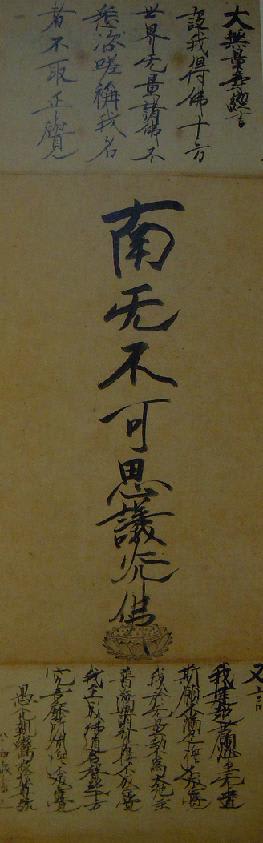 大無量壽經言
設我得佛十方
世界无量諸佛不
悉咨嗟稱我名
者不取正覺
南无不可思議光佛
又言
我建超世願必至
斯願不滿足誓不成
我於无量劫不爲大施主
普濟諸貧苦誓不成
我至成佛道名聲超十方
究竟靡所聞誓不成
愚禿親鸞敬信尊號